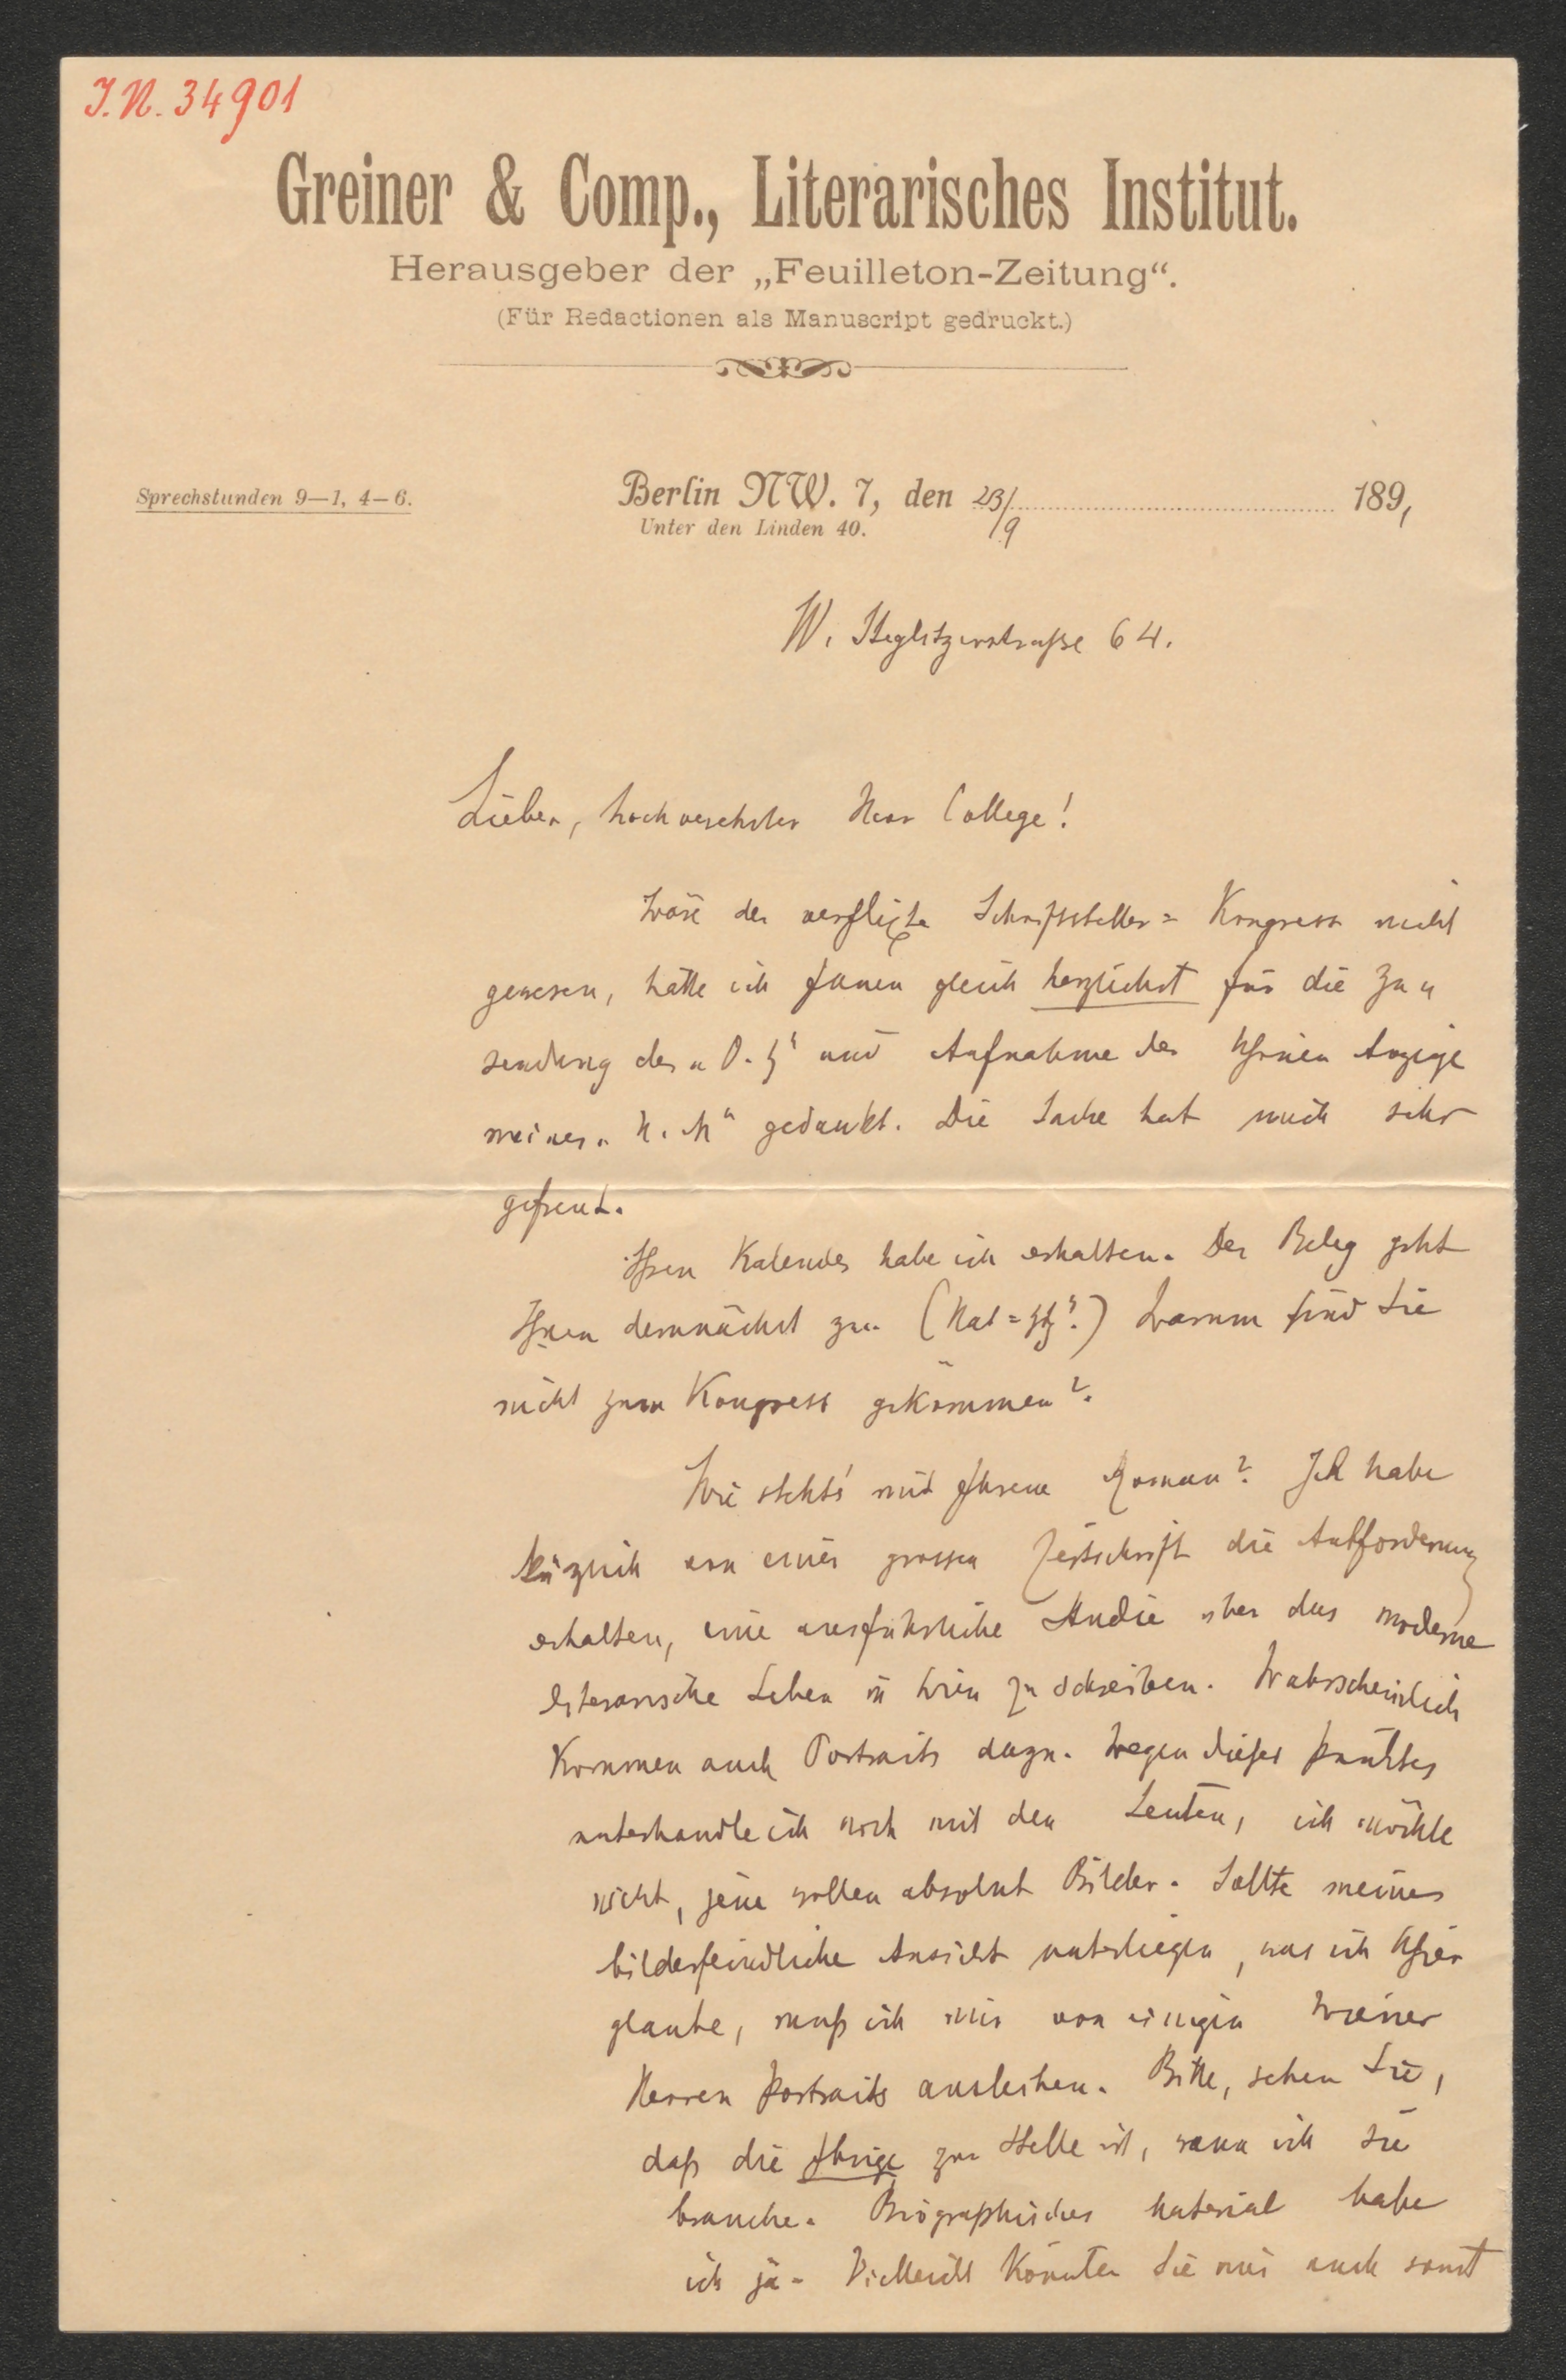 J.N. 34901
Greiner & Comp., Literarisches Institut.
Herausgeber der „Feuilleton-Zeitung“.
(Für Redactionen als Manuscript gedruckt.)
Sprechstunden 9—1, 4—6.
Berlin NW. 7, den 23/9 189,
Unter den Linden 40.
W. Steglitzerstraße 64.
Lieber, hochverehrter Herr College!
Wäre der verflixte Schriftsteller= Kongress nicht
gewesen, hätte ich Ihnen gleich herzlichst für die Zu„
sendung der „D. Z“ und Aufnahme der Anzeige
meiner „N. M“ gedankt. Die Sache hat mich sehr
gefreut.
Ihren Kalender habe ich erhalten. Der Beleg geht
Ihnen demnächst zu. (Nat=Ztg?) Warum sind Sie
nicht zum Kongress gekommen?
Wie steht's mit Ihrem Roman? Ich habe
kürzlich von einer grossen Zeitschrift die Aufforderung
erhalten, eine ausführliche Studie über das moderne
literarische Leben in Wien zu schreiben. Wahrscheinlich
kommen auch Portraits dazu. Wegen dieses Punktes
unterhandle ich noch mit den Leuten, ich möchte
nicht, jene wollen absolut Bilder. Sollte meine
bilderfeindliche Ansicht unterliegen, was ich
glaube, muß ich mir von einigen Wiener
Herren Portraits ausleihen. Bitte, sehen Sie,
daß die Ihrige zur Stelle ist, wenn ich sie
brauche. Biographisches Material habe
ich ja. Vielleicht könnten Sie mir auch sonst